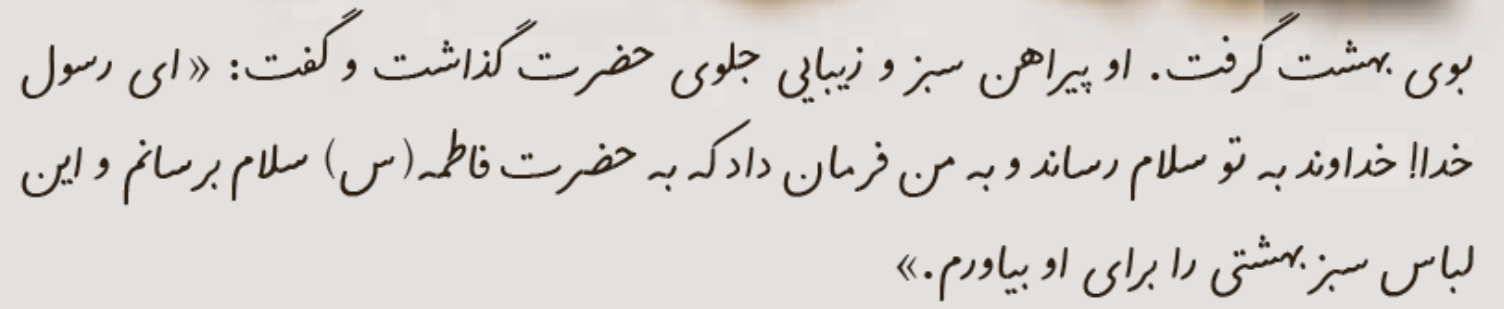 بوی بهشت گرفت. او پیراهن سبز و زیبایی جلوی حضرت گذاشت و گفت: «ای رسول
خدا! خداوند به تو سلام رساند و به من فرمان داد که به حضرت فاطمه(س) سلام برسانم و این
لباس سبز بهشتی را برای او بیاورم.»